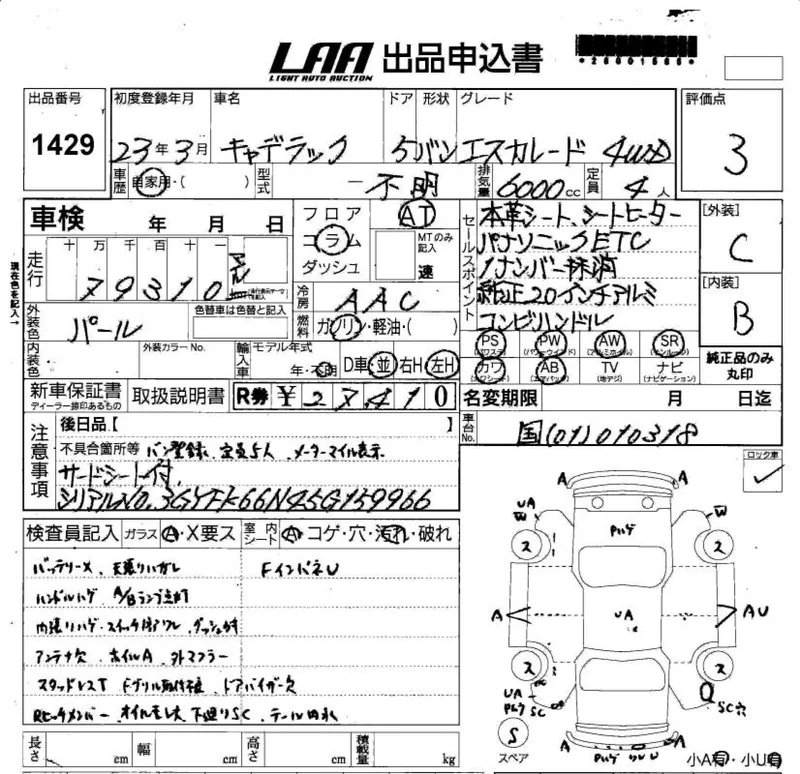 LAA 出品申込書
LIGHT AUTO AUCTION
出品番号 初度登録年月 車名 ドア 形状 グレード 評価点
1429 23年3月 キャデラック 5 バン エスカレード 4WD 3
車歴 自家用・( ) 型式 不明 排気量 6000cc 定員 4人
車検 年 月 日
フロア コラム ダッシュ AT MTのみ記入 速
セールスポイント
本革シート、シートヒーター
パナソニックETC
1ナンバー抹消
純正20インチアルミ
コンビハンドル
[外装] C
[内装] B
現在色を記入→
走行 十万千百十一
79310
冷房 AAC
燃料 ガソリン・軽油・( )
外装色 パール 色替車は色替と記入
内装色 外装カラーNo. 輸入車 モデル年式 年・不明 D車・並 右H・左H
PS (パワステ) PW (パワーウィンド) AW (アルミホイル) SR (サンルーフ)
カワ (カワシート) AB (エアバック) TV (地デジ) ナビ (ナビゲーション)
純正品のみ丸印
新車保証書 ディーラー捺印あるもの 取扱説明書 R券 ¥27,410
名変期限 月 日迄
注意事項 後日品【 】
不具合箇所等 バン登録、定員5人、メーターマイル表示
サードシート付
シリアルNO.3GYFK66N45G159966
車台No. 国(01)010318
ロック車
検査員記入 ガラス A・X要ス 室内シート A コゲ・穴・汚れ・破れ
バッテリーX、天張りハガレ FインパネU
ハンドルハゲ A/Bランプ点灯
アンテナ欠 ホイルA 外マフラー
スタッドレスT Fグリル取付不良 ドアバイザー欠
長さ cm 幅 cm 高さ cm 積載量 kg
A A
UA
W W
ス ス
Pハゲ
A UA AU
ス ス
UA
Pハゲ SC SC穴
S
スペア
A A
小A有・小U有